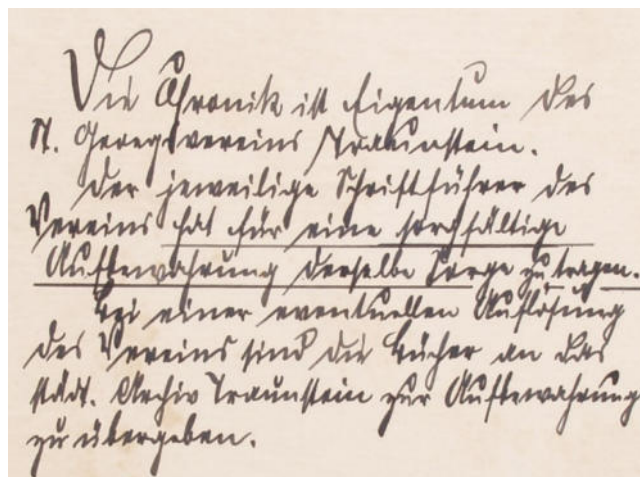 Die Chronik ist Eigentum des
St. Georgsvereins Traunstein.
Der jeweilige Schriftführer des
Vereins hat für eine sorgfältige
Aufbewahrung derselbe Sorge zu tragen.
Bei einer eventuellen Auflösung
des Vereins sind die Bücher an das
städt. Archiv Traunstein zur Aufbewahrung
zu übergeben.